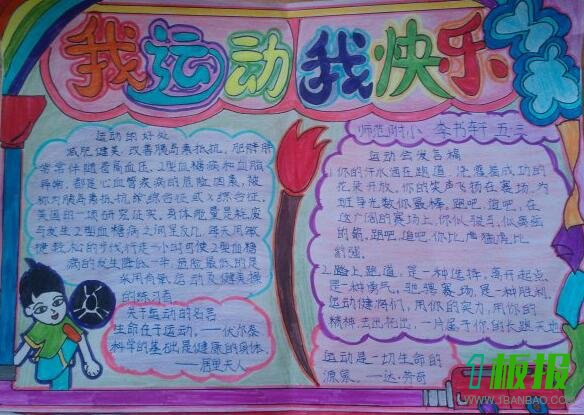 我运动 我快乐
运动的好处
减肥健美,改善胰岛素抵抗,肥胖病
常常伴随着高血压、2型血糖病和血脂
异常,都是心血管疾病的危险因素,被
称为胰岛素抵抗综合征或X综合征。
美国的一项研究证实,身体能量是耗费
与发生2型血糖病之间呈反比,每天用敏
捷轻松的步伐行走一小时可使2型血糖
病的发生降低一半,危险最低的是
采用有氧运动及健美操
的练习者
关于运动的名言
生命在于运动。——伏尔泰
科学的基础是健康的身体。
——居里夫人
师范附小 李书轩 五·三
运动会发言稿
1.你的汗水洒在跑道,浇灌着成功的
花朵开放。你的笑声飞扬在赛场,为
班争光数你最棒。跑吧,追吧,在
这广阔的赛场上,你似骏马,似离弦
的箭。跑吧,追吧,你比虎猛虎比
2.踏上跑道,是一种选择。离开起点
是一种勇气。驰骋赛场,是一种胜利。
运动健将们,用你的实力,用你的
精神,去开拓出,一片属于你的长跑天地
运动是一切生命的
源泉。——达·芬奇
1板报
WWW.1BANBAO.COM